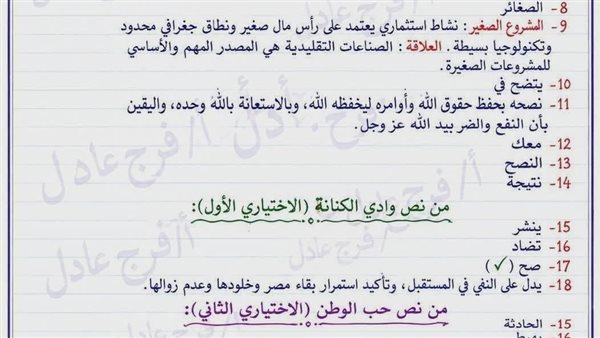 8- الصغائر
9- المشروع الصغير : نشاط استثماري يعتمد على رأس مال صغير ونطاق جغرافي محدود
وتكنولوجيا بسيطة . العلاقة : الصناعات التقليدية هي المصدر المهم والأساسي
للمشروعات الصغيرة.
10- يتضح في
11- نصحه بحفظ حقوق الله وأوامره ليحفظه الله، وبالاستعانة بالله وحده، واليقين
بأن النفع والضر بيد الله عز وجل.
12- معك
13- النصح
14- نتيجة
من نص وادي الكنانة (الاختياري الأول):
15- ينشر
16- تضاد
17- صح (✓)
18- يدل على النفي في المستقبل، وتأكيد استمرار بقاء مصر وخلودها وعدم زوالها.
من نص حب الوطن (الاختياري الثاني):
15- الحادثة
أ/فرج عادل